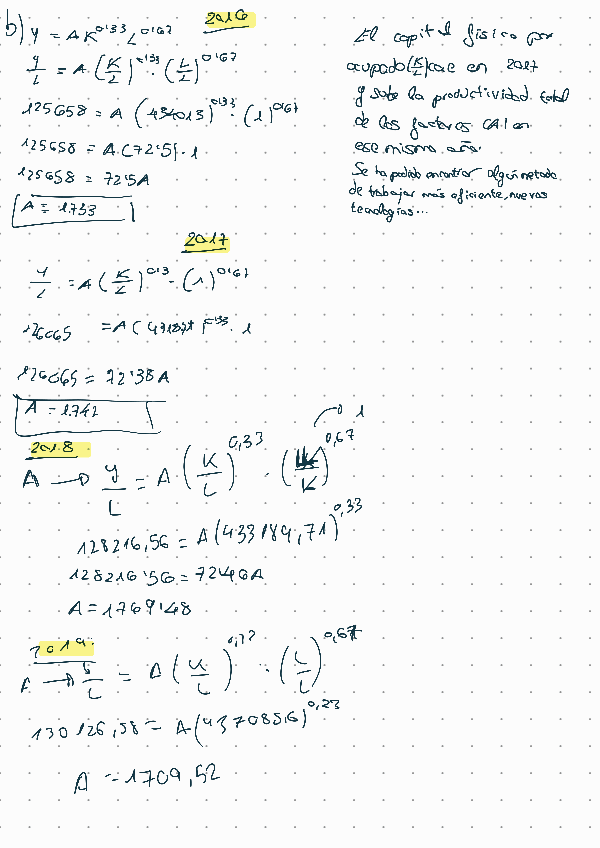 b) Y = A K^0'33 L^0'67
2016
Y/L = A · (K/L)^0'33 · (L/L)^0'67
125658 = A (434013)^0'33 · (1)^0'67
125658 = A · (72'5) · 1
125658 = 72'5A
A = 1.733
2017
Y/L = A (K/L)^0'33 · (1)^0'67
126065 = A ( )^0'33 · 1
126065 = 72'38A
A = 1.742
2018
A → Y/L = A (K/L)^0,33 · ( /K)^0,67 → 1
128216,56 = A (433189,71)^0,33
128216'56 = 72'46A
A = 1769'48
2019
A → /L = A ( /L)^ · (L/L)^0,67
130126,58 = A (437085,6)^0,23
A = 1709,52
El capital físico por
ocupado (K/L) cae en 2017
y sube la productividad total
de los factores (A) en
ese mismo año.
Se ha podido encontrar algún método
de trabajar más eficiente, nuevas
tecnologías...